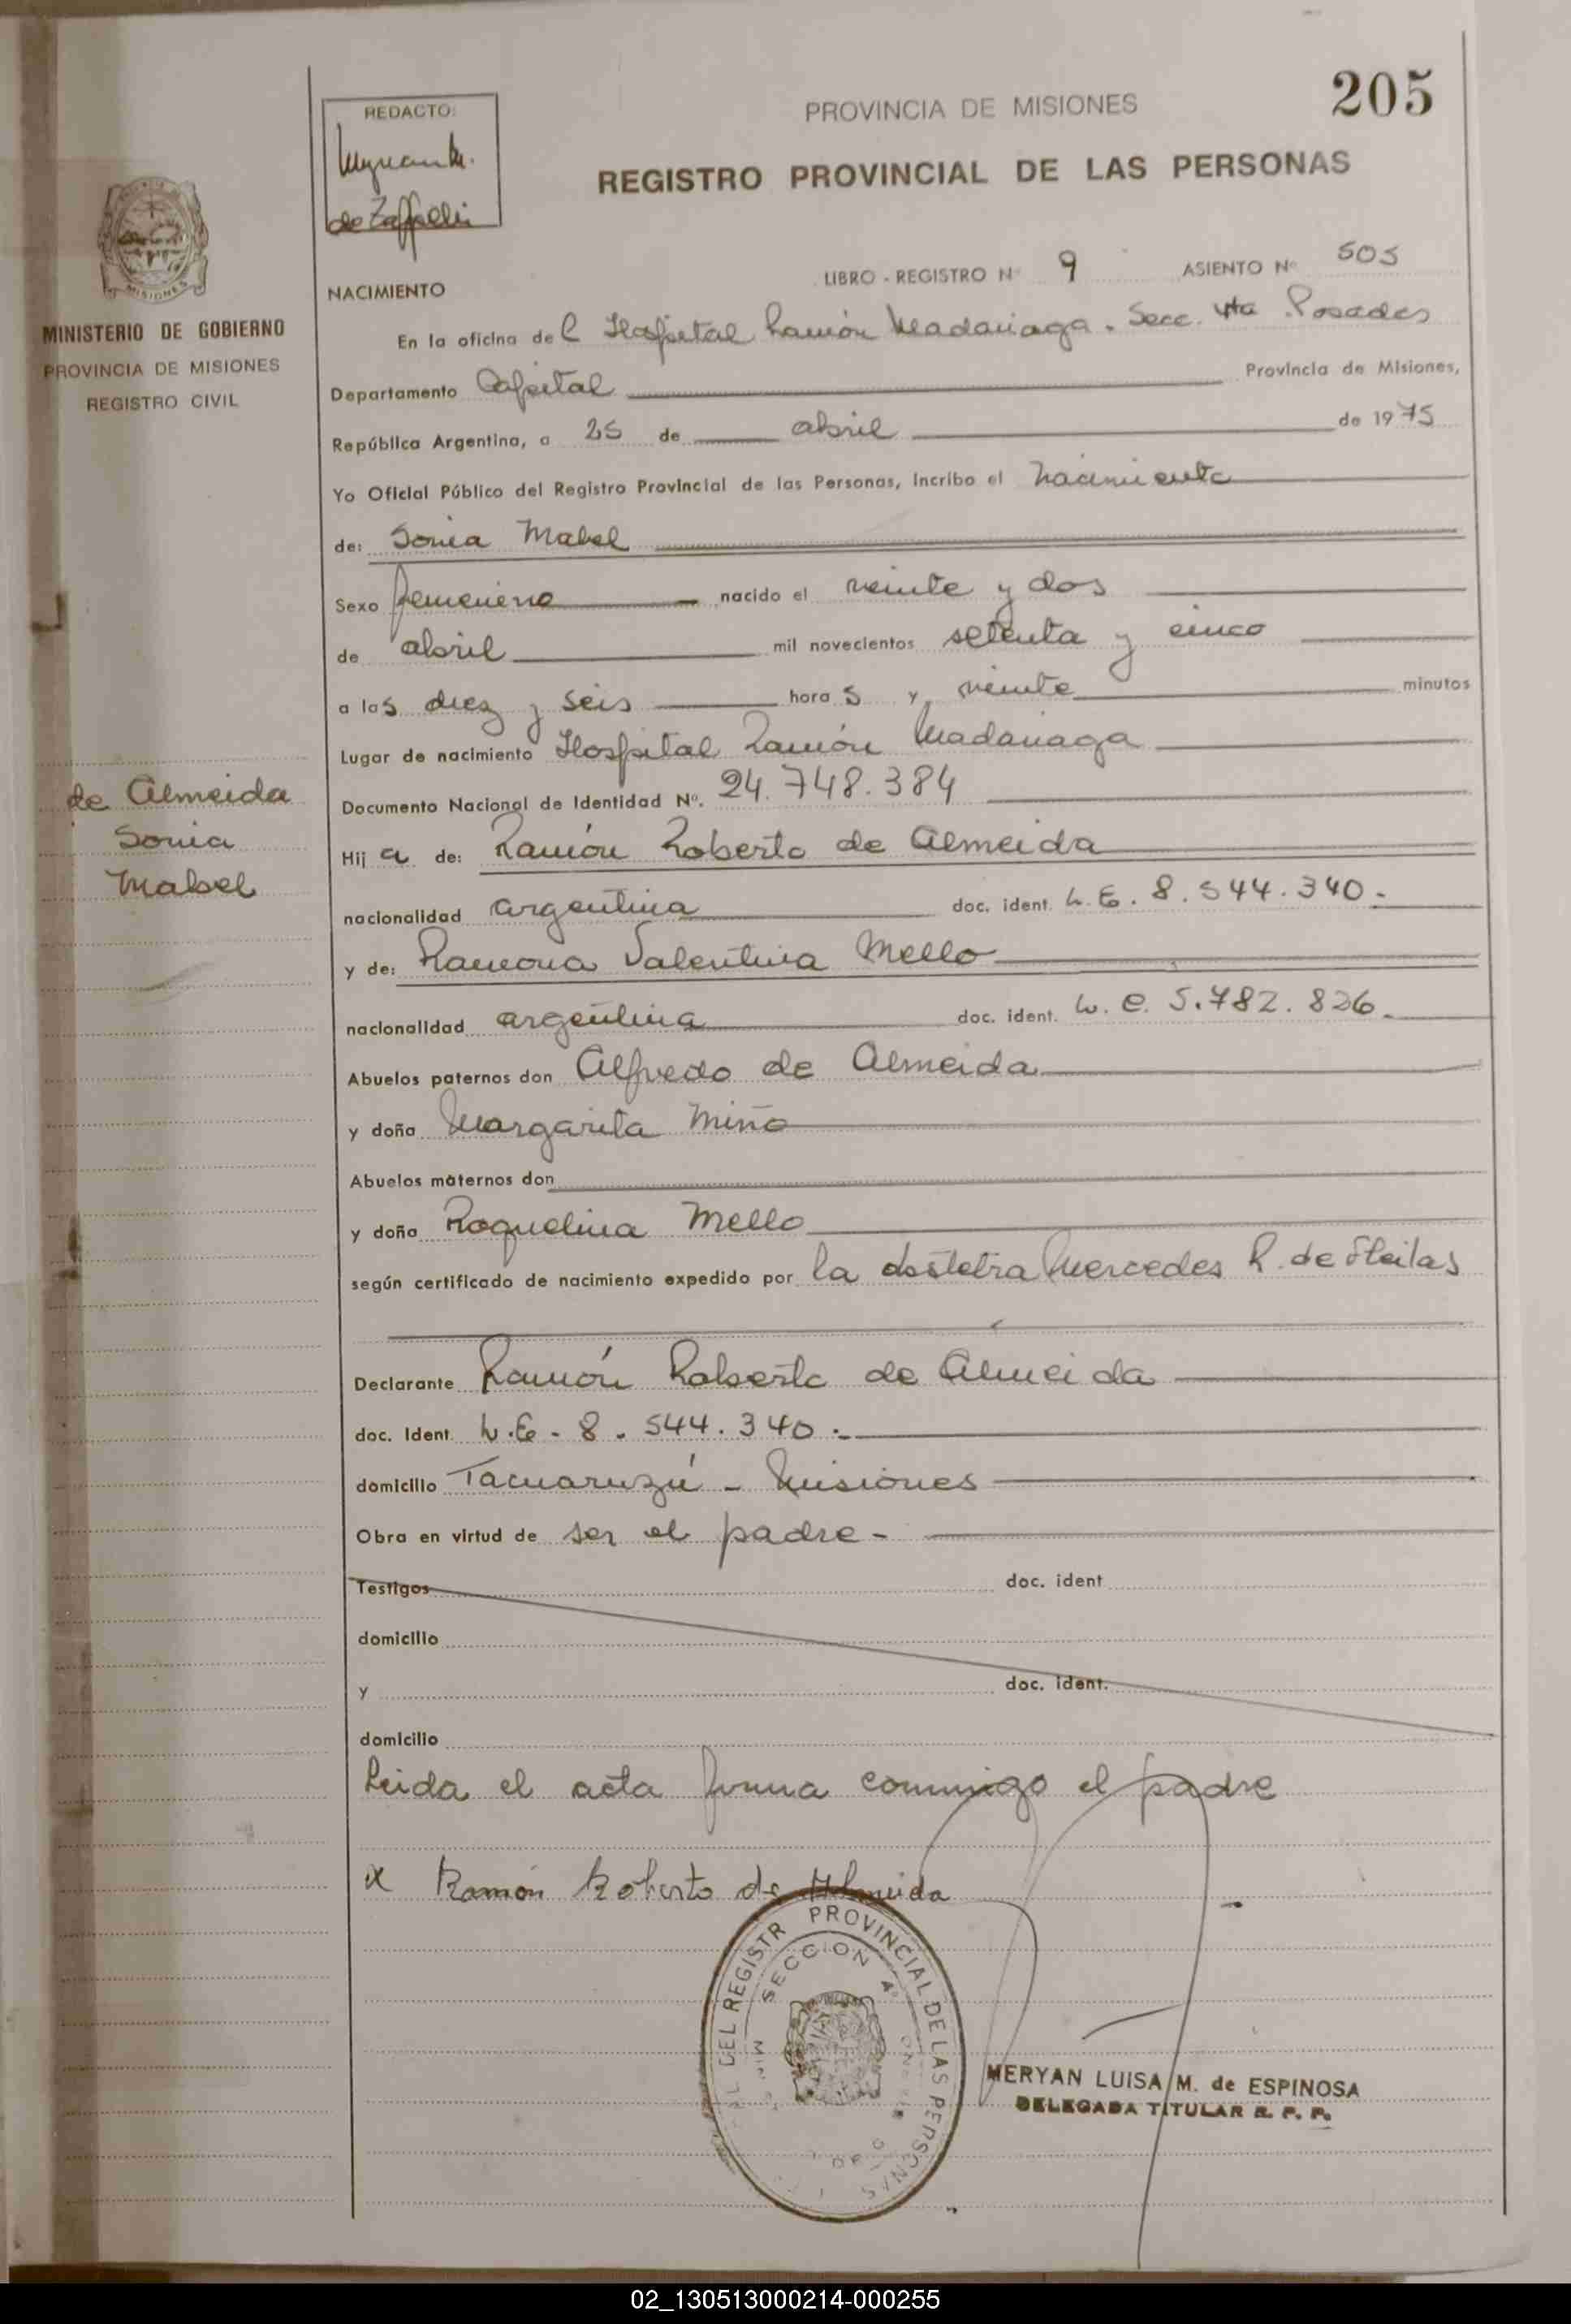 205
REDACTO:
de Zaffelli
PROVINCIA DE MISIONES
REGISTRO PROVINCIAL DE LAS PERSONAS
MISIONES
MINISTERIO DE GOBIERNO
PROVINCIA DE MISIONES
REGISTRO CIVIL
LIBRO - REGISTRO Nº 9 ASIENTO Nº 505
NACIMIENTO
En la oficina del Hospital Ramón Madariaga. Secc. 4ta Posadas
Departamento Capital Provincia de Misiones,
República Argentina, a 25 de abril de 1975
Yo Oficial Público del Registro Provincial de las Personas, Incribo el nacimiento
de: Sonia Mabel
Sexo femenino nacido el veinte y dos
de abril mil novecientos setenta y cinco
a las diez y seis horas y veinte minutos
Lugar de nacimiento Hospital Ramón Madariaga
Documento Nacional de Identidad Nº. 24.748.384
de Almeida
Sonia
Mabel
Hija de: Ramón Roberto de Almeida
nacionalidad argentina doc. ident. L.E. 8.544.340.-
y de: Ramona Valentina Mello
nacionalidad argentina doc. ident. L.C. 5.782.826.
Abuelos paternos don Alfredo de Almeida
y doña Margarita Miño
Abuelos maternos don
y doña Roquelina Mello
según certificado de nacimiento expedido por la obstetra Mercedes R. de
Declarante Ramón Roberto de Almeida
doc. Ident. L.E - 8.544.340.-
domicilio Tacuaruzú - Misiones
Obra en virtud de ser el padre -
Testigos doc. ident
domicilio
y doc. ident.
domicilio
Leida el acta firma conmigo el padre
x Ramón Roberto de Almeida
DEL REGISTR PROVINCIAL DE LAS PERSONAS
SECCION 4º
MERYAN LUISA M. de ESPINOSA
DELEGADA TITULAR R. P. P.
02_130513000214-000255